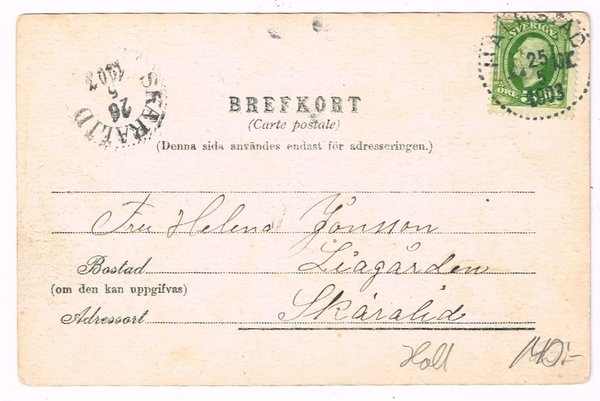 HALMSTAD
25 5
1903
SVERIGE
ÖRE
SKÄRALID
26
5
1903
BREFKORT
(Carte postale)
(Denna sida användes endast för adresseringen.)
Fru Helena Jönsson
Bostad Liagården
(om den kan uppgifvas)
Adressort Skäralid
Holl 140:-